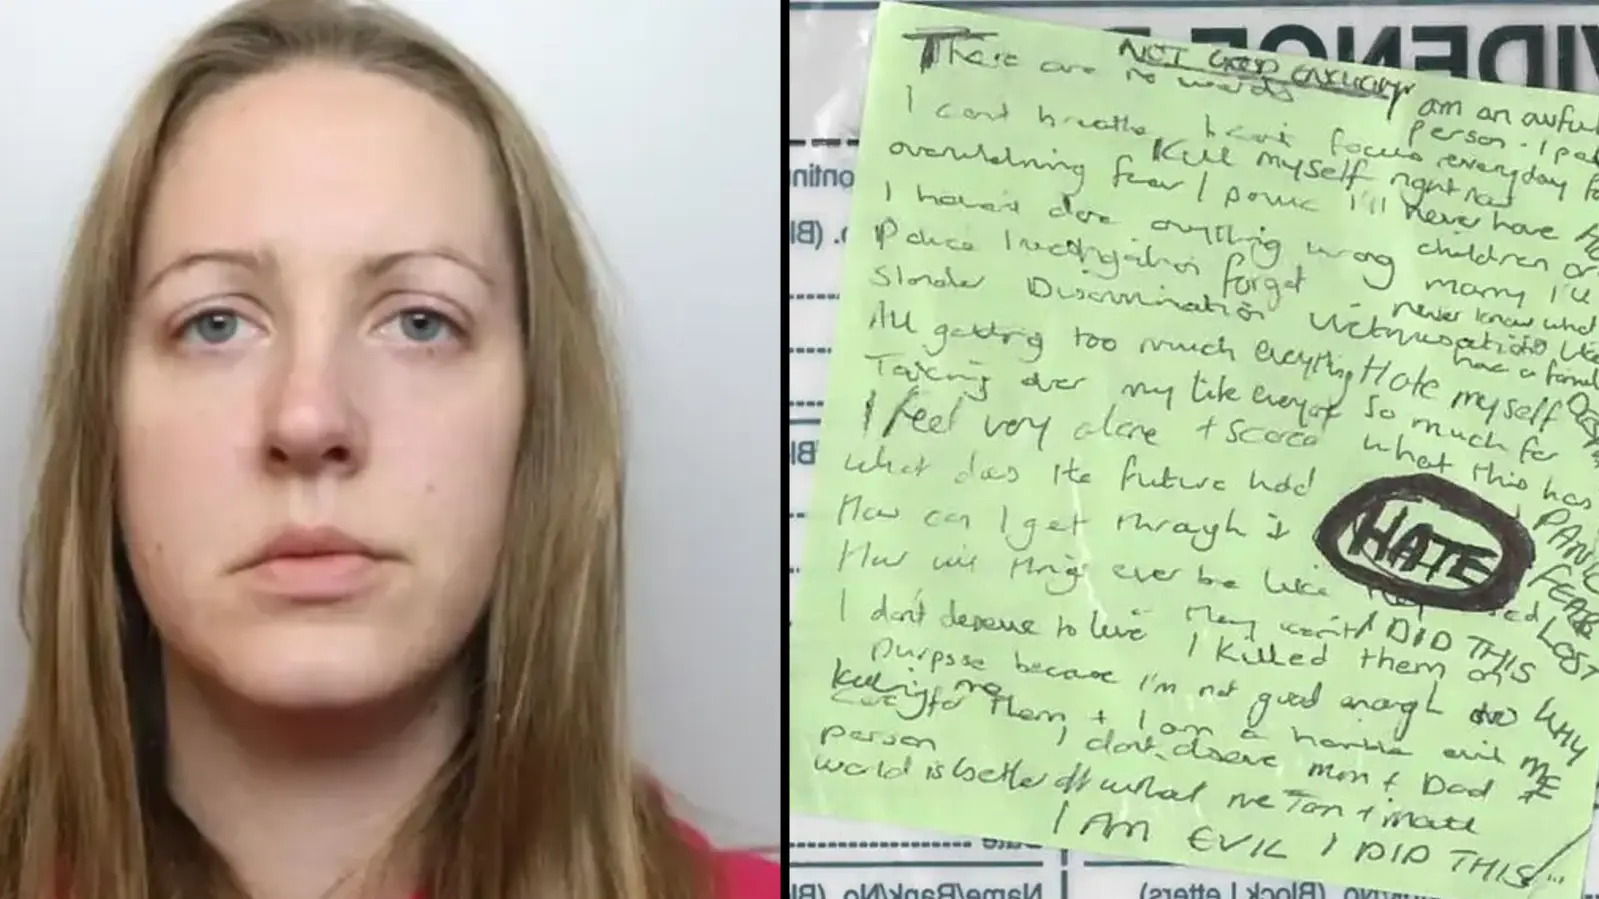 VIDENCE
NOT GOOD ENOUGH
There are no words
I am an awful
person - I pa
I can't breathe I can't focus everyday
Kill myself right now
overwhelming fear / panic I'll never have
I haven't done anything wrong children or
Police investigation forget marry I'll
never know what
Slander Discrimination Victimisation
have a famil
All getting too much everything Hate myself
Taking over my life everyone so much for
I feel very alone + scared what this has
What does the future hold
PANIC
How can I get through it
HATE
FEAR
How will things ever be like
LOST
I don't deserve to live I DID THIS
I killed them on
purpose because I'm not good enough
WHY
killing me
care for them + I am a horrible evil
ME
person I don't deserve mum + Dad
world is better off without me Tom + matt
I AM EVIL I DID THIS
Name/Bank/No. (Block Letters)